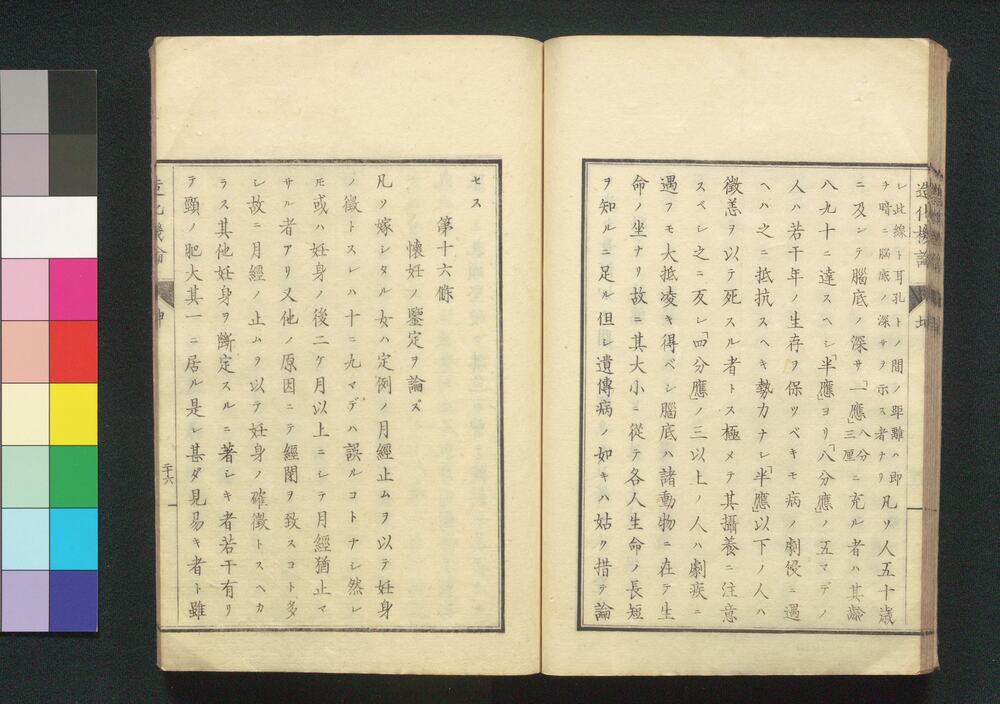 造化機論 坤
シ此線ト耳孔トノ間ノ距離ハ即
チ暗ニ脳底ノ深サヲ示ス者ナリ 凡ソ人五十歳
ニ及ンテ腦底ノ深サ「一應」八分三厘ニ充ル者ハ其齢
八九十ニ達スヘシ「半應」ヨリ「八分應」ノ五マデノ
人ハ若干年ノ生存ヲ保ツベキモ病ノ劇侵ニ遇
ヘハ之ニ抵抗スヘキ勢力ナシ「半應」以下ノ人ハ
徴恙ヲ以テ死スル者トス極メテ其攝養ニ注意
スベシ之ニ反シ「四分應」ノ三以上ノ人ハ劇疾ニ
遇フモ大抵凌キ得ベシ腦底ハ諸動物ニ在テ生
命ノ坐ナリ故ニ其大小ニ從テ各人生命ノ長短
ヲ知ルニ足ル但シ遺傳病ノ如キハ姑ク措テ論
セス
第十六條
懐妊ノ鑒定ヲ論ズ
凡ソ嫁シタル女ハ定例ノ月經止ムヲ以テ妊身
ノ徴トスレハ十ニ九マデハ誤ルコトナシ然レ
モ或ハ妊身ノ後二ケ月以上ニシテ月經猶止マ
サル者アリ又他ノ原因ニテ經閉ヲ致スコト多
シ故ニ月經ノ止ムヲ以テ妊身ノ確徴トスヘカ
ラス其他妊身ヲ斷定スルニ著シキ者若干有リ
テ頸ノ肥大其一ニ居ル是レ甚ダ見易キ者ト雖
造化機論 坤
二十六